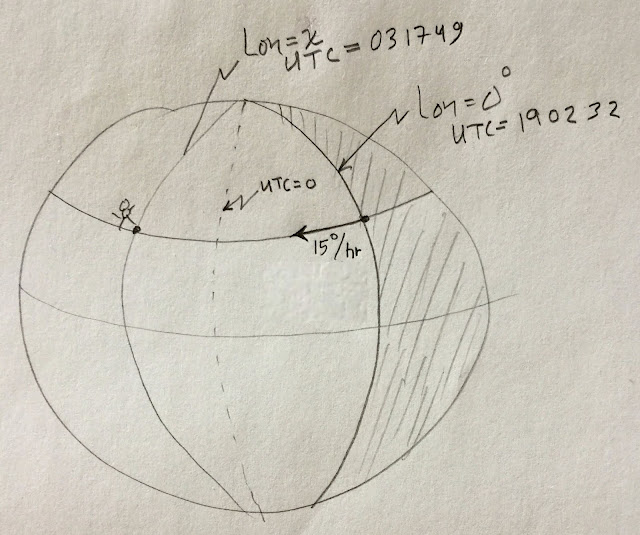 Lon=x
UTC=031749
Lon=0°
UTC=190232
UTC=0
15°/hr